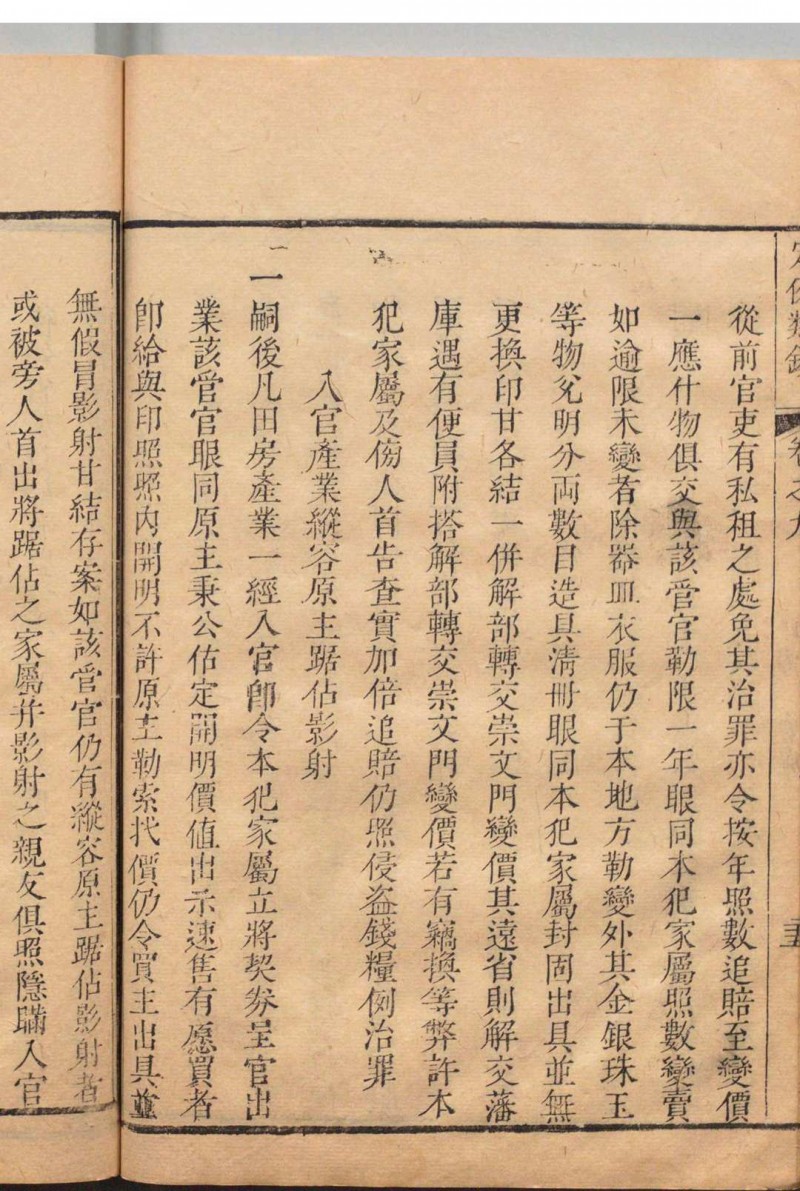 定例類鈔 卷之九
從前官吏有私租之處免其治罪亦令按年照數追賠至變價
一應什物俱交與該管官勒限一年眼同本犯家屬照數變賣
如逾限未變者除器皿衣服仍于本地方勒變外其金銀珠玉
等物兌明分両數目造具清冊眼同本犯家屬封固出具並無
更換印甘各結一併解部轉交崇文門變價其遠省則解交藩
庫遇有便員附搭解部轉交崇文門變價若有竊換等弊許本
犯家屬及傍人首告查實加倍追賠仍照侵盜錢糧例治罪
入官產業縱容原主踞佔影射
一嗣後凡田房產業一經入官卽令本犯家屬立將契券呈官出
業該管官眼同原主秉公估定開明價值出示速售有愿買者
卽給與印照照內開明不許原主勒索找價仍令買主出具並
無假冒影射甘結存案如該管官仍有縱容原主踞佔影射者
或被旁人首出將踞佔之家屬幷影射之親友俱照隱瞞入官